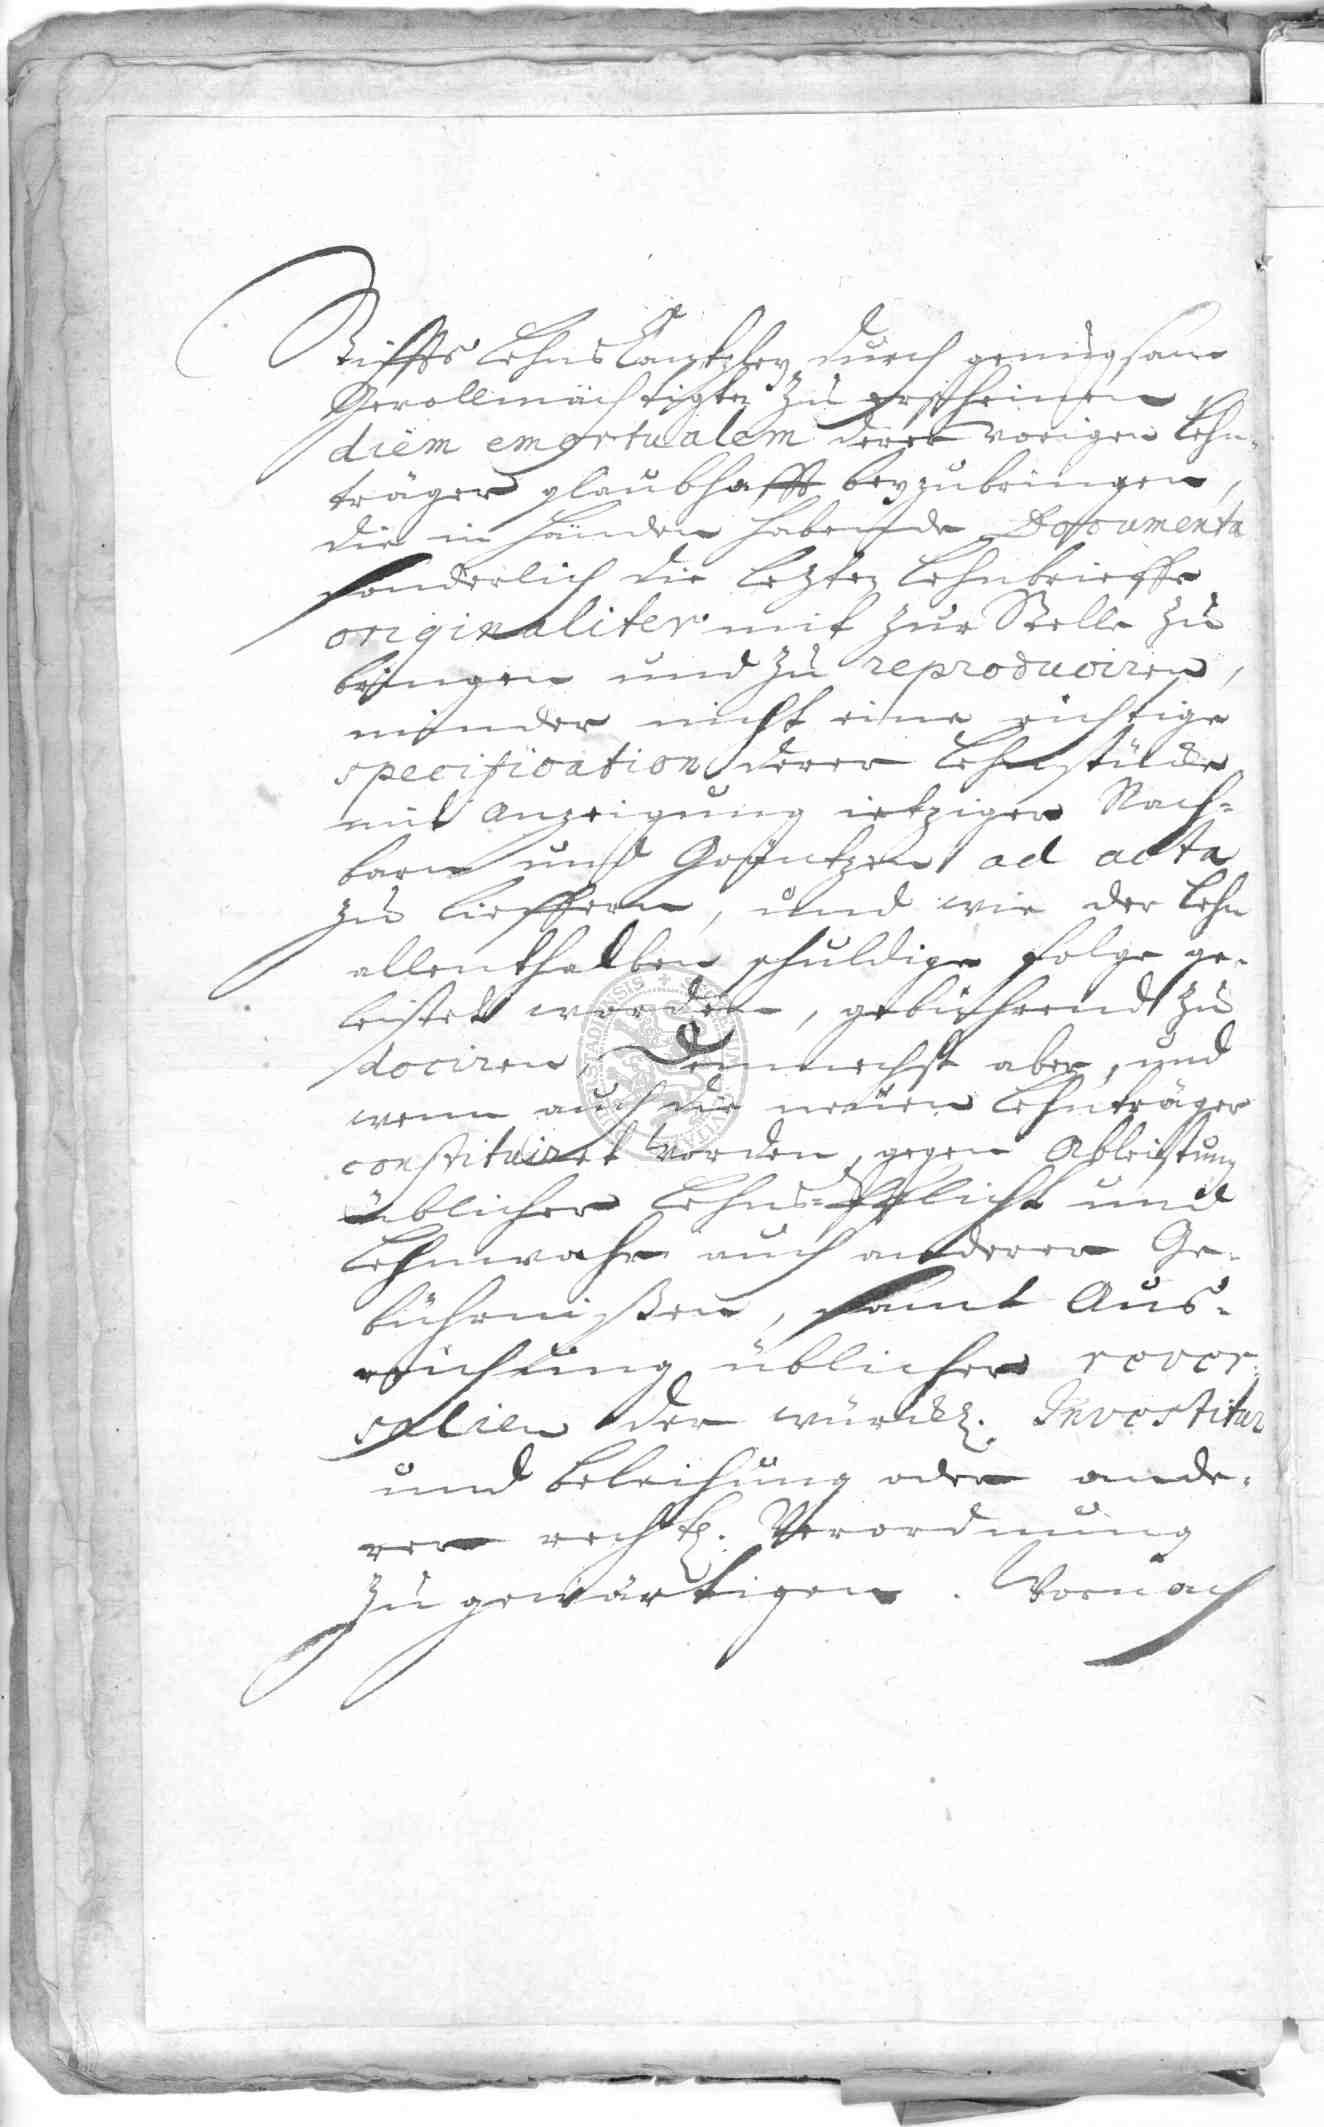 Stiffts Lehns Cantzley durch genugsam
Gevollmächtigte zu erscheinen,
diem emortualem derer vorigen Lehn-
träger glaubhafft beyzubringen,
die in Händen habende Documenta
sonderlich die lezten Lehnbrieffe
originaliter mit zur Stelle zu
bringen und zu reproduciren,
minder nicht eine richtige
specification derer Lehnstücke
mit Anzeigung ietziger Nach=
barn und Gräntzen ad acta
zu lieffern, und wie der Lehn
allenthalben schuldige Folge ge-
leistet worden, gebührend zu
dociren, demnechst aber, und
wenn auch die neuen Lehnträger
constituiret worden, gegen Ableistung
üblicher Lehns=Pflicht und
Lehnwahr auch anderer Ge-
bührnißen, samt Aus-
reichung üblicher rever-
salien der würckl. Investitur
und Beleihung oder ande-
rer rechtl. Verordnung
zu gewärtigen. Wornach